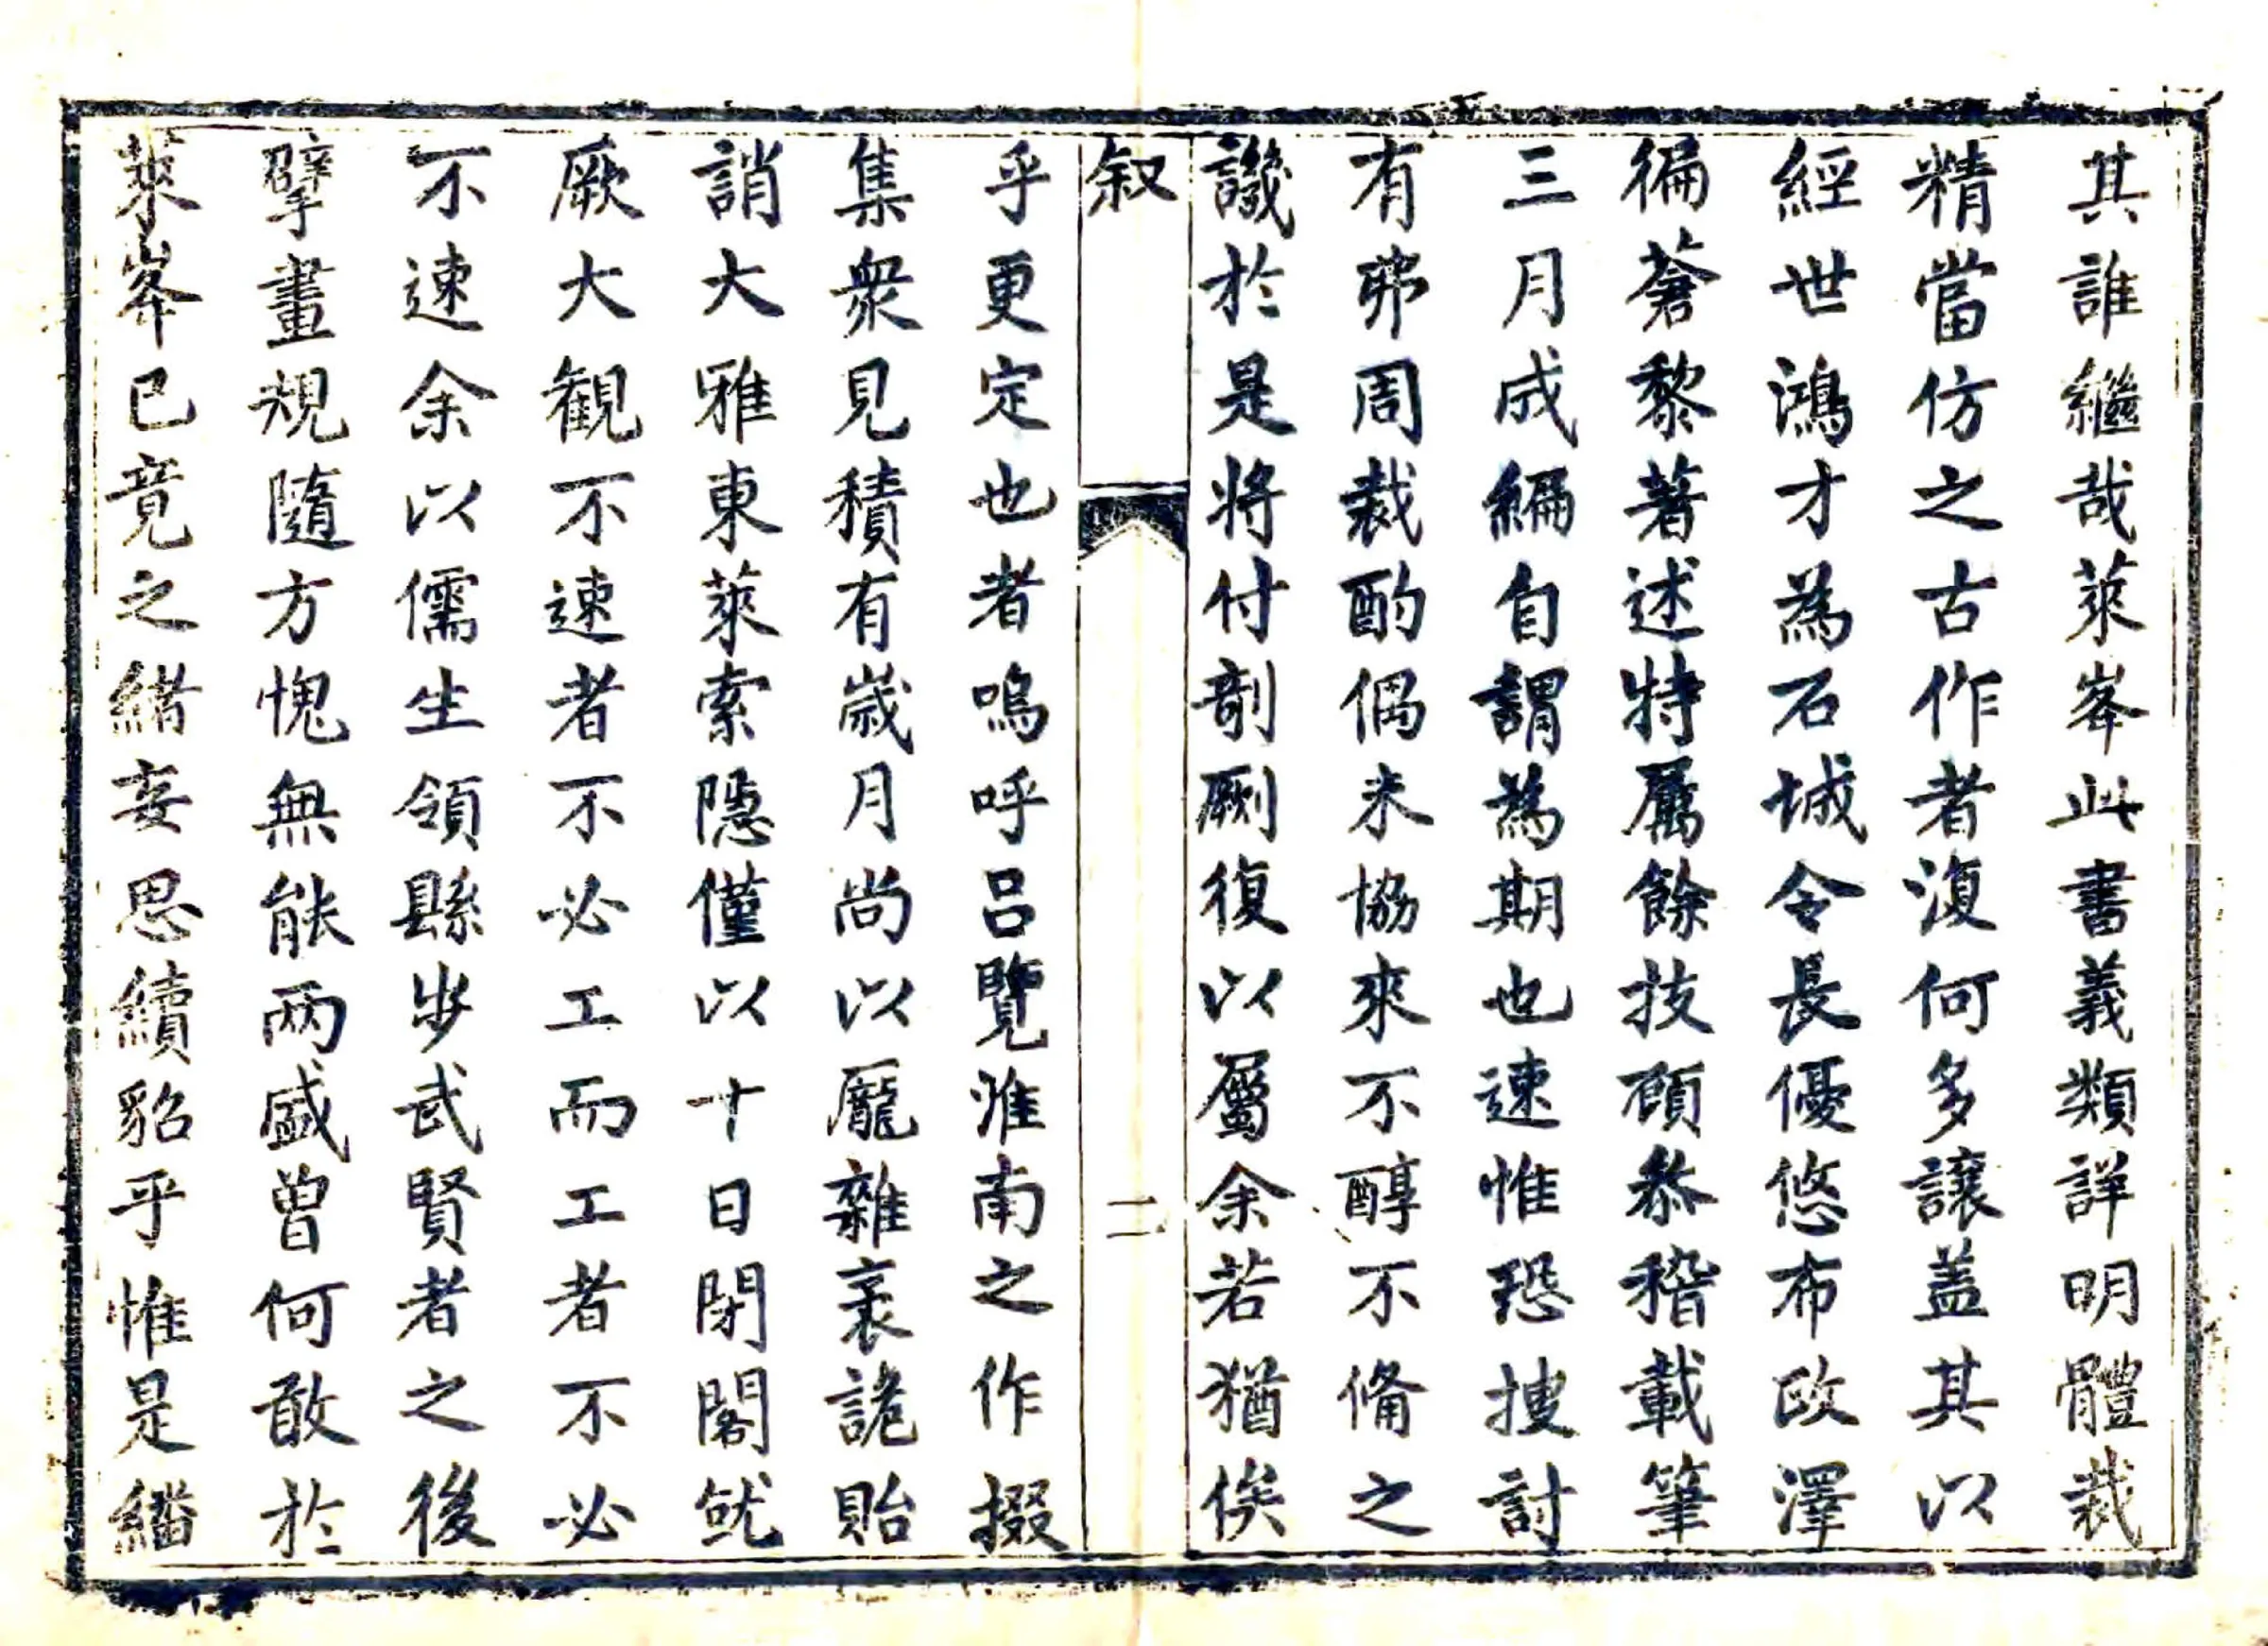 其誰繼哉萊峯此書義類詳明體裁
精當仿之古作者復何多讓盖其以
經世鴻才為石城令長優悠布政澤
徧蒼黎著述特屬餘技顧叅稽載筆
三月成編自謂為期也速惟恐搜討
有弗周裁酌偶未協來不醇不備之
譏於是將付剞劂復以屬余若猶俟
叙
二
乎更定也者嗚呼呂覽淮南之作掇
集衆見積有歲月尚以龎雜袤詭貽
誚大雅東萊索隱僅以十日閉閣就
厥大觀不速者不必工而工者不必
不速余以儒生領縣步武賢者之後
擘畫規隨方愧無能兩盛曾何敢於
萊峯已竟之緒妄思續貂乎惟是繙